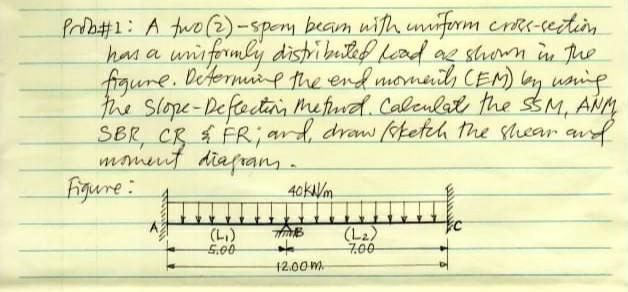 Prob#1: A two(2)-span beam with uniform cross-section
has a uniformly distributed load as shown in the
figure. Determine the end moments (EM) by using
the Slope-Deflection Method. Calculate the SSM, ANM,
SBR, CR & FR; and, draw/sketch the shear and
moment diagrams.
Figure:
40kN/m
A B C
(L1) (L2)
5.00 7.00
12.00m.